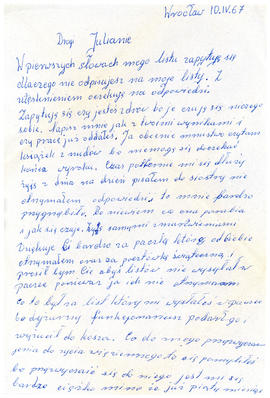 Wrocław 10.IV.67
Drogi Julianie
W pierwszych słowach mego listu zapytuję się
dlaczego nie odpisujesz na moje listy. Z
niecierpieniem oczekuję na odpowiedzi.
Zapytuję się czy jesteś zdrów bo ja czuję się niczego
sobie. Napisz mnie jak z twoimi wynikami i
czy pracę już oddałeś. Ja obecnie mnóstwo czytam
książek z nudów bo niemogę się doczekać
końca wyroku. Czas potwornie mi się dłuży
żyję z dnia na dzień pisałem do siostry nie
otrzymałem odpowiedzi, to mnie bardzo
przygnębiło, bo niewiem co ona porabia
i jak się czuje. Żyję samymi zmartwieniami
Dziękuję Ci bardzo za paczkę którą od Ciebie
otrzymałem oraz za pocztówkę świąteczną i
prosił bym Cię abyś listów nie wysyłał w
paczce ponieważ ja ich nie otrzymam
co to był za list który mi wysłałeś w paczce
bo dyżurny funkcjonariusz podarł go i
wyrzucił do kosza. Co do mego przyzwycza
jenia do życia więziennego to się pomyliłeś
bo przyzwyczaić się do niego jest mi się
bardzo ciężko mimo że już piąty miesiąc